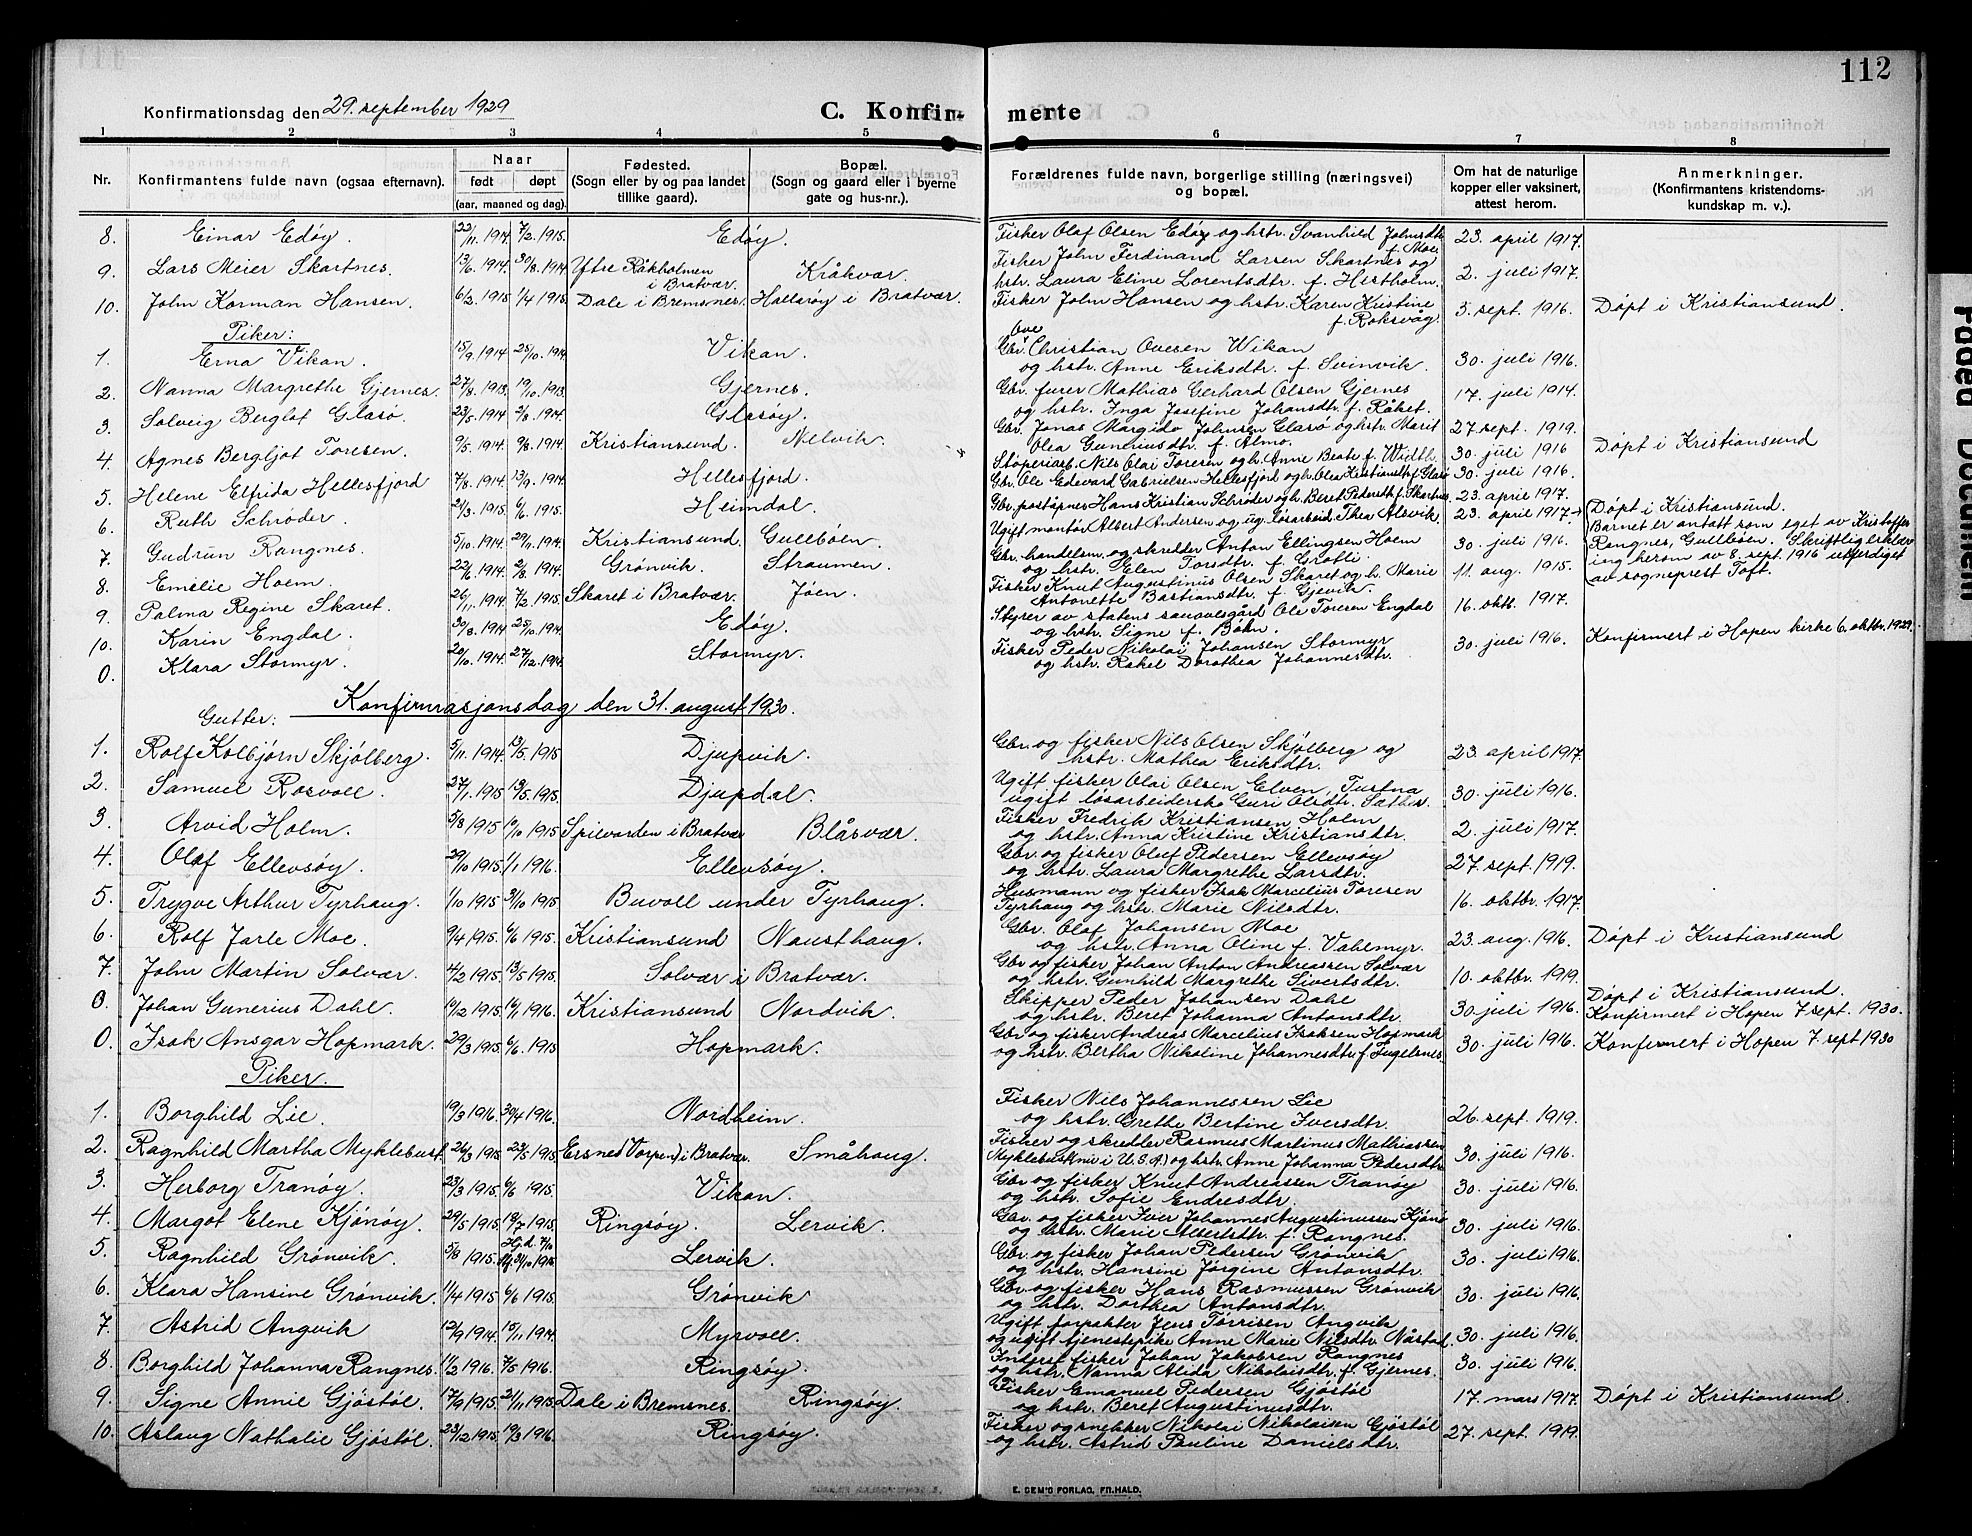 112
Konfirmationsdag den 29. september 1929
C. Konfir- merte
1 2 3 4 5 6 7 8
Nr. Konfirmantens fulde navn (ogsaa efternavn). Naar født døpt (aar, maaned og dag). Fødested. (Sogn eller by og paa landet tillike gaard). Bopæl. (Sogn og gaard eller i byerne gate og hus-nr.). Forældrenes fulde navn, borgerlige stilling (næringsvei) og bopæl. Om hat de naturlige kopper eller vaksinert, attest herom. Anmerkninger. (Konfirmantens kristendoms- kundskap m. v.).
8. Einar Edøy. 22/11. 1914. 7/2. 1915. Edøy. Fisker Olaf Olsen Edøy og hstr. Svanhild Johnsdtr. f. Moe. 23. april 1917.
9. Lars Meier Skartnes. 13/6. 1914. 30/8. 1914 Ytre Råkholmen i Bratvær. Kråkvær. Fisker John Ferdinand Larsen Skartnes og hstr. Laura Eline Lorentsdtr. f. Hestholm. 2. juli 1917.
10. John Korman Hansen. 6/2. 1915 1/4 1915. Dale i Bremsnes. Hallarøy i Bratvær. Fisker John Hansen og hstr. Karen Kristine f. Roksvåg. 3. sept. 1916. Døpt i Kristiansund.
Piker:
1. Erna Vikan. 15/9. 1914 25/10. 1914 Vikan. Gbr. Christian Ove Ovesen Wikan og hstr. Anne Eriksdtr. f. Sveinvik. 30. juli 1916.
2. Nanna Margrethe Gjernes. 27/8. 1913. 19/10. 1913. Gjernes. Gbr. furer Mathias Gerhard Olsen Gjernes og hstr. Inga Josefine Johansdtr. f. Råket. 17. juli 1914.
3. Solveig Berglot Glasø 23/5. 1914 2/8. 1914. Glasøy. Gbr. Jonas Margido Johnsen Glasø og hstr. Marit Olea Gunnriusdtr. f. Almo. 27. sept. 1919.
4. Agnes Bergljot Toresen. 9/5. 1914. 9/8. 1914. Kristiansund. Nelvik. Støperiarb. Nils Olai Toresen og h. Anne Beate f. Width. 30. juli 1916 Døpt i Kristiansund
5. Helene Elfrida Hellesfjord 7/8. 1914. 13/9. 1914. Hellesfjord. Gbr. Ole Edevard Gabrielsen Hellesfjord og hr. Olea Kristiansdtr. f. Glasø 30. juli 1916.
6. Ruth Schrøder. 21/3. 1915. 6/6. 1915. Heimdal. Gbr. poståpnes Hans Kristian Schrøder og h. Beret Pedersdtr. f. Skartnes. 23. april 1917.
7. Gudrun Rangnes. 5/10. 1914. 29/11. 1914. Kristiansund. Gullbøen. Ugift montør Albert Andersen og ug. løsarbeid. Thea Alsvik. 23. april 1917. Døpt i Kristiansund. Barnet er antatt som eget av Kristoffer Rangnes, Gullbøen. Skriftlig erklær ing herom av 8. sept. 1916 utferdiget av sogneprest Toft.
8. Emelie Hoem. 22/6. 1914. 2/8. 1914. Grønvik. Straumen. Gbr. handelsm. og skredder Anton Ellingsen Hoem og hstr. Elen Torsdtr. f. Grotli 30. juli 1916.
9. Palma Regine Skaret. 26/11. 1914. 7/2. 1915. Skaret i Bratvær. Jøen. Fisker Knut Augustinus Olsen Skaret og h. Marie Antonette Bastiansdtr. f. Gjevik. 11. aug. 1915.
10. Karin Engdal. 30/8. 1914 25/10. 1914. Edøy. Styrer av statens saueavlsgård Ole Toresen Engdal og hstr. Signe f. Bøhn. 16. oktb. 1917.
0. Klara Stormyr. 20/10. 1914. 27/12. 1914. Stormyr. Fisker Peder Nikolai Johansen Stormyr og hstr. Rakel Dorothea Johannesdtr. 30. juli 1916. Konfirmert i Hopen kirke 6. oktbr. 1929.
Konfirmasjonsdag den 31. august 1930.
Gutter:
1. Rolf Kolbjørn Skjølberg. 5/11. 1914. 13/5. 1915 Djupvik. Gbr. og fisker Nils Olsen Skjølberg og hstr. Mathea Eriksdtr. 23. april 1917.
2. Samuel Rosvoll. 27/1. 1915 13/5. 1915. Djupdal. Ugift fisker Olai Olsen Elven, Tustna ugift løsarbeiderske Guri Olsdtr. Sæther. 30. juli 1916.
3. Arvid Holm. 5/8 1915 10/10 1915 Spilvarden i Bratvær Blåsvær. Fisker Fredrik Kristiansen Holm og hstr. Anna Kristine Kristiansdtr. 2. juli 1917.
4. Olaf Ellevsøy. 29/10 1915 1/1 1916. Ellevsøy. Gbr. og fisker Oluf Pedersen Ellevsøy og hstr. Laura Margrethe Larsdtr. 27. sept. 1919.
5. Trygve Arthur Tyrhaug. 1/10 1915 31/10 1915 Buvoll under Tyrhaug. Husmann og fisker Isak Marcelius Toresen Tyrhaug og hstr. Marie Nilsdtr. 16. oktbr. 1917.
6. Rolf Jarle Moe. 9/4 1915. 6/6 1915. Kristiansund Nausthaug. Gbr. Olaf Johansen Moe og hstr. Anna Oline f. Vahlmyr. 23. aug. 1916. Døpt i Kristiansund
7. John Martin Solvær. 4/2 1915. 13/5 1915. Solvær i Bratvær. Gbr og fisker Johan Anton Andreassen Solvær og hstr. Gunhild Margrethe Sivertsdtr. 10. oktbr. 1919.
0. Johan Gunerius Dahl. 10/12 1915. 16/1 1916. Kristiansund Nordvik. Skipper Peder Johansen Dahl og hstr. Beret Johanna Antonsdtr. 30. juli 1916. Døpt i Kristiansund. Konfirmert i Hopen 7 sept. 1930.
0. Isak Ansgar Hopmark. 29/3 1915. 6/6. 1915 Hopmark. Gbr og fisker Andreas Marcelius Isaksen Hopmark og hstr. Bertha Nikoline Johannesdtr. f. Fugelsnes. 30. juli 1916. Konfirmert i Hopen 7. sept 1930
Piker.
1. Borghild Lie. 19/3 1916. 30/4 1916. Nordheim. Fisker Nils Johannessen Lie og hstr. Grethe Bertine Iversdtr. 26. sept. 1919.
2. Ragnhild Martha Myklebust. 26/3 1915 23/5 1915. Ersnes (Vorpen) i Bratvær. Småhaug. Fisker og skredder Rasmus Martinus Mathiassen Myklebust (nu i U.S.A.) og hstr. Anne Johanna Pedersdtr. 30. juli 1916.
3. Herborg Tranøy. 23/3 1915. 6/6 1915. Vikan. Gbr og fisker Knut Andreassen Tranøy og hstr. Sofie Endresdtr. 30. juli 1916.
4. Margot Elene Kjønøy. 29/5 1915. 18/7 1915. Ringsøy. Lervik Gbr. og fisker Iver Johannes Augustinussen Kjønø og hstr. Marie Albertsdtr. f. Rangnes. 30. juli 1916.
5. Ragnhild Grønvik. 5/8 1915. Hj.d. 7/10 31/10 1915 Lervik. Gbr. og fisker Johan Pedersen Grønvik og hstr. Hansine Jørgine Antonsdtr. 30. juli 1916.
6. Klara Hansine Grønvik. 1/4 1915 6/6 1915. Grønvik Gbr. og fisker Hans Rasmussen Grønvik og hstr. Dorthea Antonsdtr. 30. juli 1916.
7. Astrid Angvik 12/9 1914. 15/11 1914. Myrvoll. Ugift forpakter Jens Tørrisen Angvik og ugift tjenestepike Anne Marie Nilsdtr. Nåstad. 30. juli 1916.
8. Borghild Johanna Rangnes. 11/2 1916. 7/5 1916. Ringsøy. Inderst fisker Johan Jakobsen Rangnes og hstr. Nanna Alida Nikolaisdtr. f. Gjernes. 30. juli 1916.
9. Signe Annie Gjøstøl. 17/9 1915. 21/11 1915 Dale i Bremsnes. Ringsøy. Fisker Emanuel Pedersen Gjøstøl og hstr. Beret Augustinusdtr. 17. mars 1917. Døpt i Kristiansund.
10. Aslaug Nathalie Gjøstøl. 23/12 1915. 19/3 1916. Ringsøy. Fisker og snekker Nikolai Nikolaisen Gjøstøl og hstr. Astrid Pauline Danielsdtr. 27. sept. 1919.
E. SEM'S FORLAG, FR.HALD.